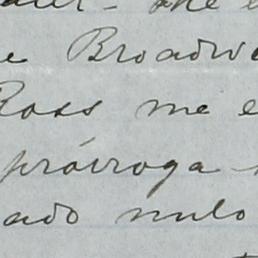 e Broadw
Ross me e
próroga
ado nulo